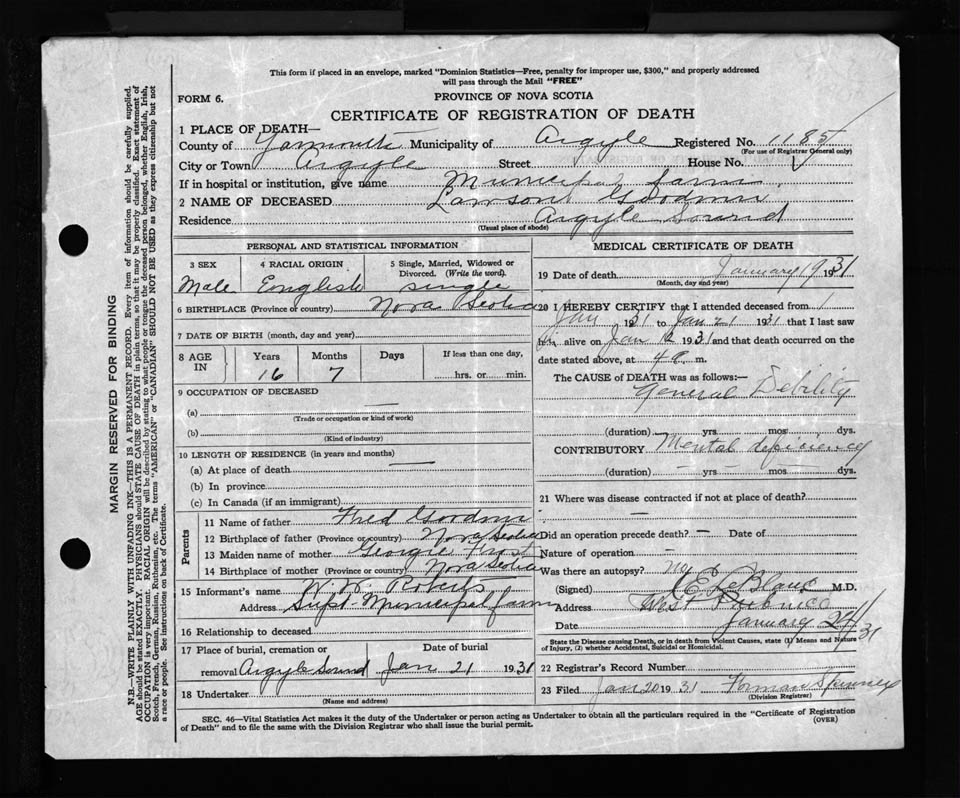 This form if placed in an envelope, marked "Dominion Statistics—Free, penalty for improper use, $300," and properly addressed
will pass through the Mail "FREE"
FORM 6.
PROVINCE OF NOVA SCOTIA
CERTIFICATE OF REGISTRATION OF DEATH
1 PLACE OF DEATH—
County of Yarmouth Municipality of Argyle Registered No. 1185
(For use of Registrar General only)
City or Town Argyle Street House No.
If in hospital or institution, give name Municipal farm
2 NAME OF DECEASED Lawson Goodwin
Residence Argyle Sound
(Usual place of abode)
PERSONAL AND STATISTICAL INFORMATION
3 SEX 4 RACIAL ORIGIN 5 Single, Married, Widowed or
Divorced. (Write the word).
Male English single
6 BIRTHPLACE (Province or country) Nova Scotia
7 DATE OF BIRTH (month, day and year)
8 AGE IN Years Months Days If less than one day,
16 7 hrs. or min.
9 OCCUPATION OF DECEASED
(a) —
(Trade or occupation or kind of work)
(b)
(Kind of industry)
10 LENGTH OF RESIDENCE (in years and months)
(a) At place of death —
(b) In province
(c) In Canada (if an immigrant)
Parents
11 Name of father Fred Goodwin
12 Birthplace of father (Province or country) Nova Scotia
13 Maiden name of mother Georgie
14 Birthplace of mother (Province or country) Nova Scotia
15 Informant's name W. W. Roberts
Address Supt. Municipal farm
16 Relationship to deceased
17 Place of burial, cremation or Date of burial
removal Argyle Sound Jan 21 1931
18 Undertaker
(Name and address)
MEDICAL CERTIFICATE OF DEATH
19 Date of death January 19 1931
(Month, day and year)
20 I HEREBY CERTIFY that I attended deceased from 1
Jan 1931 to Jan 21 1931 that I last saw
him alive on Jan 1931 and that death occurred on the
date stated above, at 4 a. m.
The CAUSE OF DEATH was as follows:—
General Debility
(duration) yrs mos dys.
CONTRIBUTORY Mental deficiency
(duration) — yrs — mos — dys.
21 Where was disease contracted if not at place of death?
—
Did an operation precede death? — Date of
Nature of operation —
Was there an autopsy? No
(Signed) E. LeBlanc M.D.
Address West Pubnico
Date January 24/31
State the Disease causing Death, or in death from Violent Causes, state (1) Means and Nature
of Injury, (2) whether Accidental, Suicidal or Homicidal.
22 Registrar's Record Number
23 Filed Jan 20 1931 Forman Spinney
(Division Registrar)
SEC. 46—Vital Statistics Act makes it the duty of the Undertaker or person acting as Undertaker to obtain all the particulars required in the "Certificate of Registration
of Death" and to file the same with the Division Registrar who shall issue the burial permit. (OVER)
MARGIN RESERVED FOR BINDING
N.B.—WRITE PLAINLY WITH UNFADING INK—THIS IS A PERMANENT RECORD. Every item of information should be carefully supplied.
AGE should be stated EXACTLY. PHYSICIANS should STATE CAUSE OF DEATH in plain terms, so that it may be properly classified. Exact statement of
OCCUPATION is very important. RACIAL ORIGIN will be described by stating to what people or race the deceased person belonged, whether English, Irish,
Scotch, French, German, Russian, Ruthenian, etc. The terms "AMERICAN" or "CANADIAN" SHOULD NOT BE USED as they express citizenship but not
a race or people. See instructions on back of Certificate.